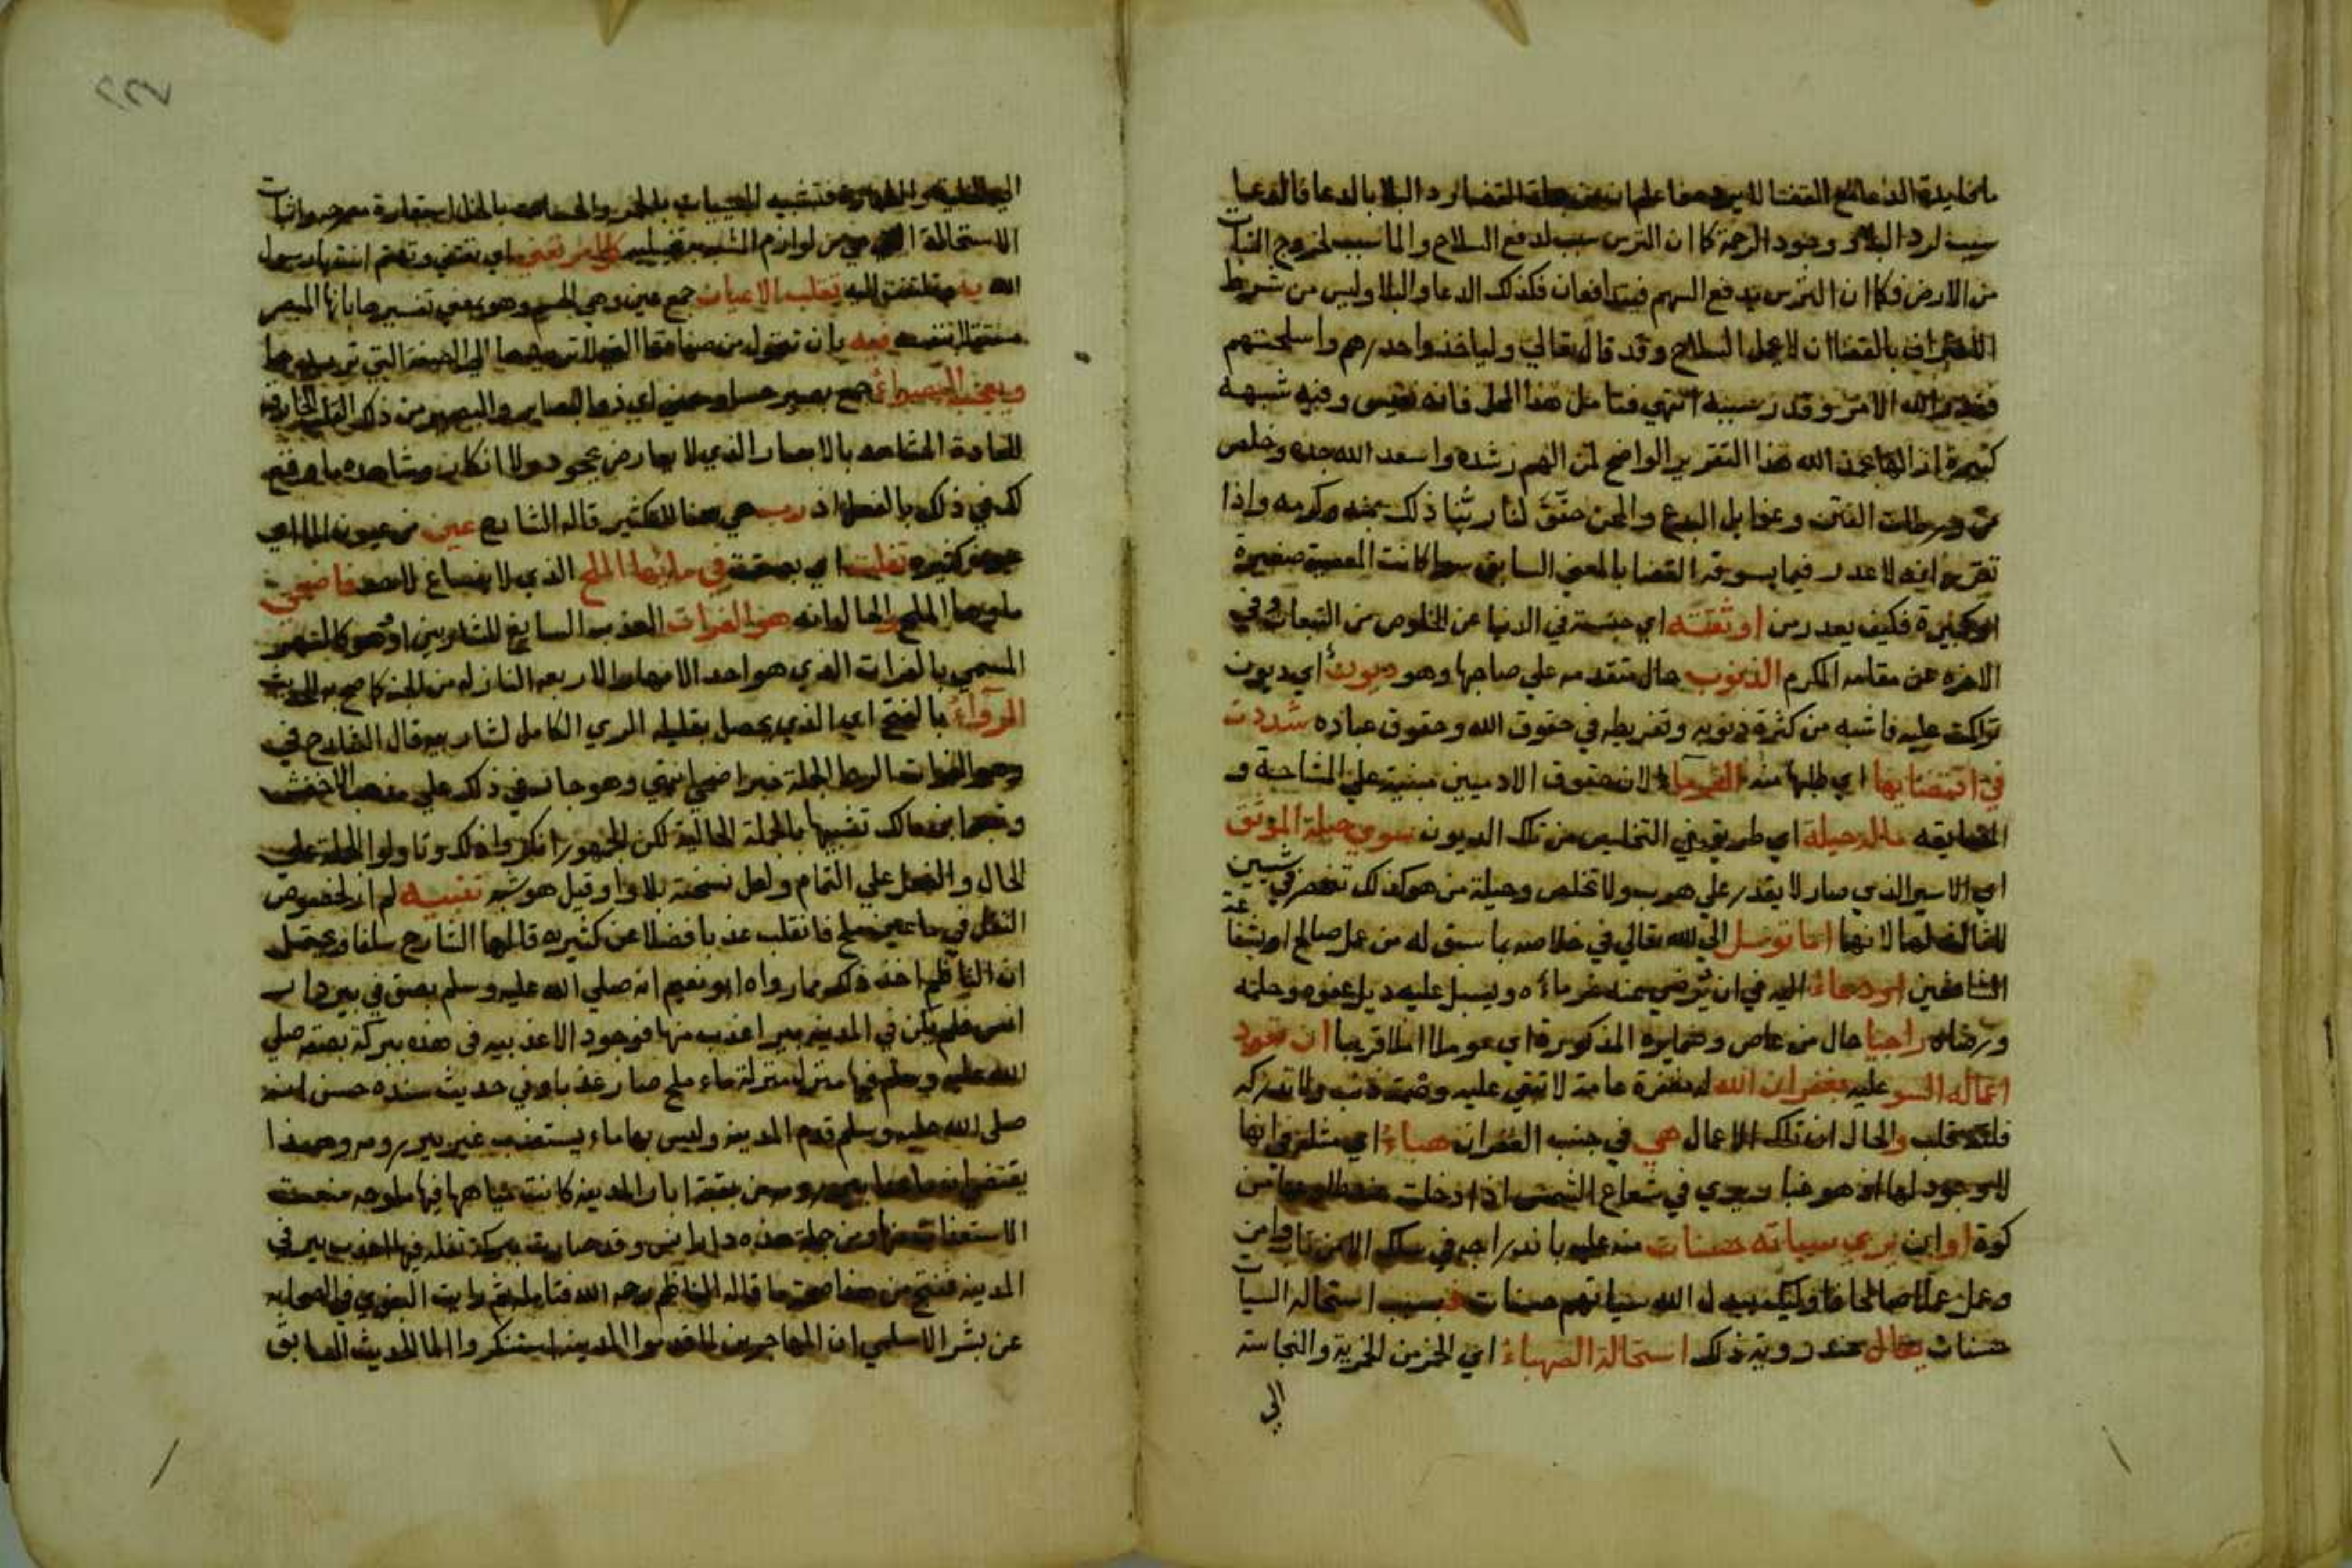 ما فايدة الدعا مع القضا لا يرد فاعلم ان من جملة القضا رد البلا بالدعا فالدعا
سبب لرد البلا ووجود الرحمة كما ان الترس سبب لدفع السلاح والما سبب لخروج النبات
من الارض فكما ان الترس يدفع السهم فيتدافعان فكذلك الدعا والبلا وليس من شرط
الاعتراف بالقضا ان لا يحمل السلاح وقد قال تعالي ولياخذوا حذرهم واسلحتهم
فقدر الله الامر وقدر سببه انتهي فتامل هذا المحل فانه نفيس وفيه شبهة
كثيرة ازالها بحمد الله هذا التقرير الواضح لمن الهم رشده واسعد الله جده وخلص
من ورطات الفتن وغوايل البدع والمحن حقق لنا ربنا ذلك بمنه وكرمه واذا
تقرر انه لا عذر فيما يسوقه القضا بالمعني السابق سوا كانت المعصية صغيرة
او كبيرة فكيف يعذر من اوثقته اي حبسته في الدنيا عن الخلوص من التبعات وفي
الاخرة عن مقامه المكرم الذنوب حال متقدمه علي صاحبها وهو ديون اي ديون
تراكت عليه فاشبه من كثرة ذنوبه وتفريطه في حقوق الله وحقوق عباده شددت
في اقتضايها اي طلبها منه الغرماء لان حقوق الادميين مبنية علي المشاحة و
المضايقه ماله حيلة اي طريق في التخليص من تلك الديون سوي حيلة الموثق
اي الاسير الذي صار لا يقدر علي هرب ولا تخلص وحيلة من هو كذلك تنحصر في شيين
لا ثالث لهما لانها اما توسل الي الله تعالي في خلاصه بما سبق له من عمل صالح او بشفاعة
الشافعين او دعاء اليه في ان يرضي عنه غرماءه ويسبل عليه ذيل عفوه وحلمه
ورضاه راجيا حال من عاص وضمايره المذكورة اي موملا املا قريبا ان تعود
اعماله السو عليه بغفران الله له مغفرة عامة لا تبقي عليه وصمة ذنب ولا تدركه
فلتة تجلب والحال ان تلك الاعمال هي في جنب الغفران هباء اي مثله في انها
لا وجود لها اذ هو هبا ويري في شعاع الشمس اذا دخلت من
كوة او ان يري سيياته حسنات منه عليه باندراجه في سلك الا من تاب وامن
وعمل عملا صالحا فاوليك يبدل الله سياتهم حسنات فبسبب استحالة السيات
حسنات يقال عند روية ذلك استحالة الصهباء اي الخمر من الخمرية والنجاسة
الي
الي الخلية والطهارة فتشبيه السييات بالخمر والحسنات بالخل استعارة مصرحه واثبات
الاستحالة التي هي من لوازم المشبه به تخييل كل امر تعني اي تعتني وتهتم انت يا رسول
الله به تقلب الاعيان جمع عين وهي الجسم وهو معني تفسيرها بانها المبصر
فيه بان تتحول من صفاتها التي لا ترضاها الي الصفة التي تريدها
وتعجب البصراء جمع بصير حسا ومعني اي ذوا البصاير والبصر من ذلك القلب الخارق
للعادة المشاهد بالابصار الذي لا يعارض بجحود ولا انكار ومشاهده ما وقع
لك في ذلك بالفعل اذ رب هي هنا للتكثير قاله الشارح عين من عيون الما اي
كثيرة تفلت اي بصقت في مائها الملح الذي لا ينساغ لاحد فاضحي
ماوها الملح والحال انه هو الفرات العذب السايغ للشاربين او هو كالنهر
المسمي بالفرات الذي هو احد الانهار الاربعه النازلة من الجنة كما صح به الحديث
الرواء بالفتح اي الذي يحصل بقليله الري الكامل لشاربيه قال الشارح في
وهو الفرات الرط الجملة خبر اضحي انتهي وهو جار في ذلك علي مذهب الاخفش
وتبعه ابن مالك تشبيها بالجملة الحالية لكن الجمهور انكروا ذلك وتاولوا الجملة علي
الحال والفعل علي التمام ولعل نسخته بلا واو قيل هو شبه تنبيه لم ار لخصوص
التفل في ما عين ملح فانقلب عذبا فضلا عن كثيره قالها الشارح سلفا ويحتمل
ان الناظم اخذ ذلك مما رواه ابو نعيم انه صلي الله عليه وسلم بصق في بير دار
انس فلم يكن في المدينه بير اعذب منها فوجود الاعذبيه في هذه ببركة بصقه صلي
الله عليه وسلم فيها منزل منزلة ماء ملح صار عذبا وفي حديث سنده حسن انه
صلي الله عليه وسلم قدم المدينه وليس بها ماء يستعذب غير بير رومه وهذا
يقتضي ان ما عدا بير رومه من بقية ابار المدينه كانت مياهها فيها ملوحه منعت
الاستعذاب منها ومن جملة هذه دار انس وقد صارت ببركة تفله فيها اعذب بير في
المدينه فنتج من هذا صحة ما قاله الناظم رحمه الله فتامله ثم رايت البغوي في الصحابه
عن بشر الاسلمي ان المهاجرين لما قدموا المدينه استنكروا الما الحديث السابق